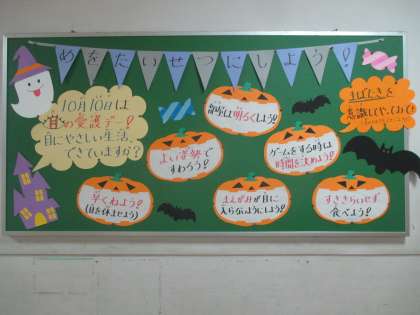 めをたいせつにしよう!
10月10日は
目の愛護デー!
目にやさしい生活、
できていますか?
部屋は明るくしよう!
よい姿勢で
すわろう!
ゲームをする時は
時間を決めよう!
早くねよう!
(目を休ませよう)
まえがみが目に
入らないようにしよう!
すききらいせず
食べよう!